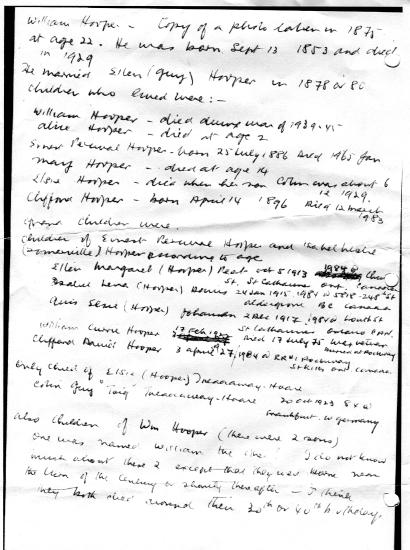 William Hooper - Copy of a photo taken in 1875
at age 22. He was born Sept 13 1853 and died
in 1929
He married Ellen (Guy) Hooper in 1878 or 80
Children who lived were :-
William Hooper - died during war of 1939-45
Hooper - died at age 2
Ernest Percival Hooper - born 25 July 1886 died 1965 Jan
Mary Hooper - died at age 14
Elsie Hooper - died when her son Colin was about 6
12 1929
Clifford Hooper - born April 14 1896 Died 12 March
1983
Grand children were.
Children of Ernest Percival Hooper and Isabel Leslie
(Somerville) Hooper according to age
Ellen Margaret (Hooper) Peat Oct 8 1913 1984 @
St. St Catharines Ont. Canada
Isabel Lena (Hooper) 24 Jan 1915, 1984 @ 5818-248th St
Aldergrove BC Canada
Elsie (Hooper) Johannan 2 Dec 1917, 1984 @ South St
St Catharines Ontario
William Currie Hooper 17 Feb 1922 died 17 July 75
Clifford Daniel Hooper 3 April 27, 1984 @ RR#1
St Kitts Ont Canada.
Only child of Elsie (Hooper) Treadaway-Hoare
Colin Guy "Taig" Treadaway-Hoare 20 Oct 1923 84 @
Frankfurt W Germany
Also children of Wm Hooper (there were 2 sons)
One was named William the other ? I do not know
much about these 2 except that they were born near
the turn of the century or shortly thereafter - I think
they both died around their 30th or 40th birthday.